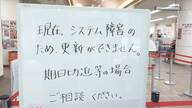 現在、システム障害の
ため、更新ができません。
期日切迫等の場合
ご相談ください。